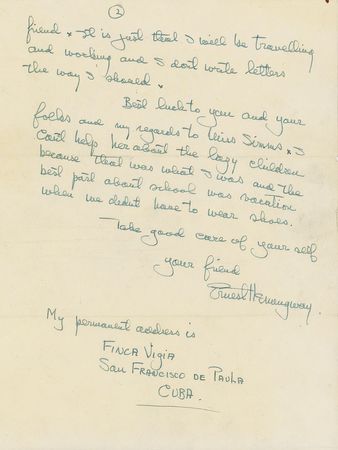 (2)
friend x It is just that I will be travelling
and working and I don't write letters
the way I should x
Best luck to you and your
folks and my regards to Miss Simms x I
can't help her about the lazy children
because that was what I was and the
best part about school was vacation
when we didn't have to wear shoes.
Take good care of your self
your friend
Ernest Hemingway.
My permanent address is
FINCA VIGIA
SAN FRANCISCO DE PAULA
CUBA.